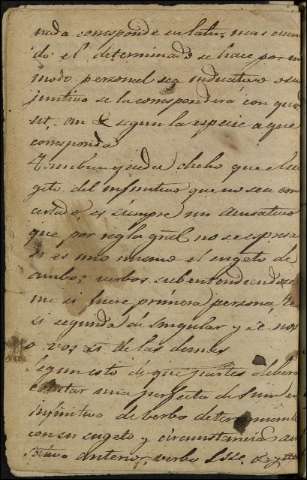 nada corresponde en latin, mas cuan
do el determinado se hace por un
modo personal sea indicativo o su
juntivo se la corresponderá con quod
ut, an & segun la especie a que
corresponda
Tambien queda dicho que el su
geto del infinitivo que no sea con
certado, es siempre un acusativo
que por regla gral. no se espresa
si es uno mismo el sugeto de
ambos verbos subentendiendose
me si fuere primera persona, te
si segunda de singular y se nos
o vos si de las demas
Segun esto de que partes debera
constar una perfecta de
infinitivo de verbo determinante
con su sugeto y circunstancias
anterior, verbo